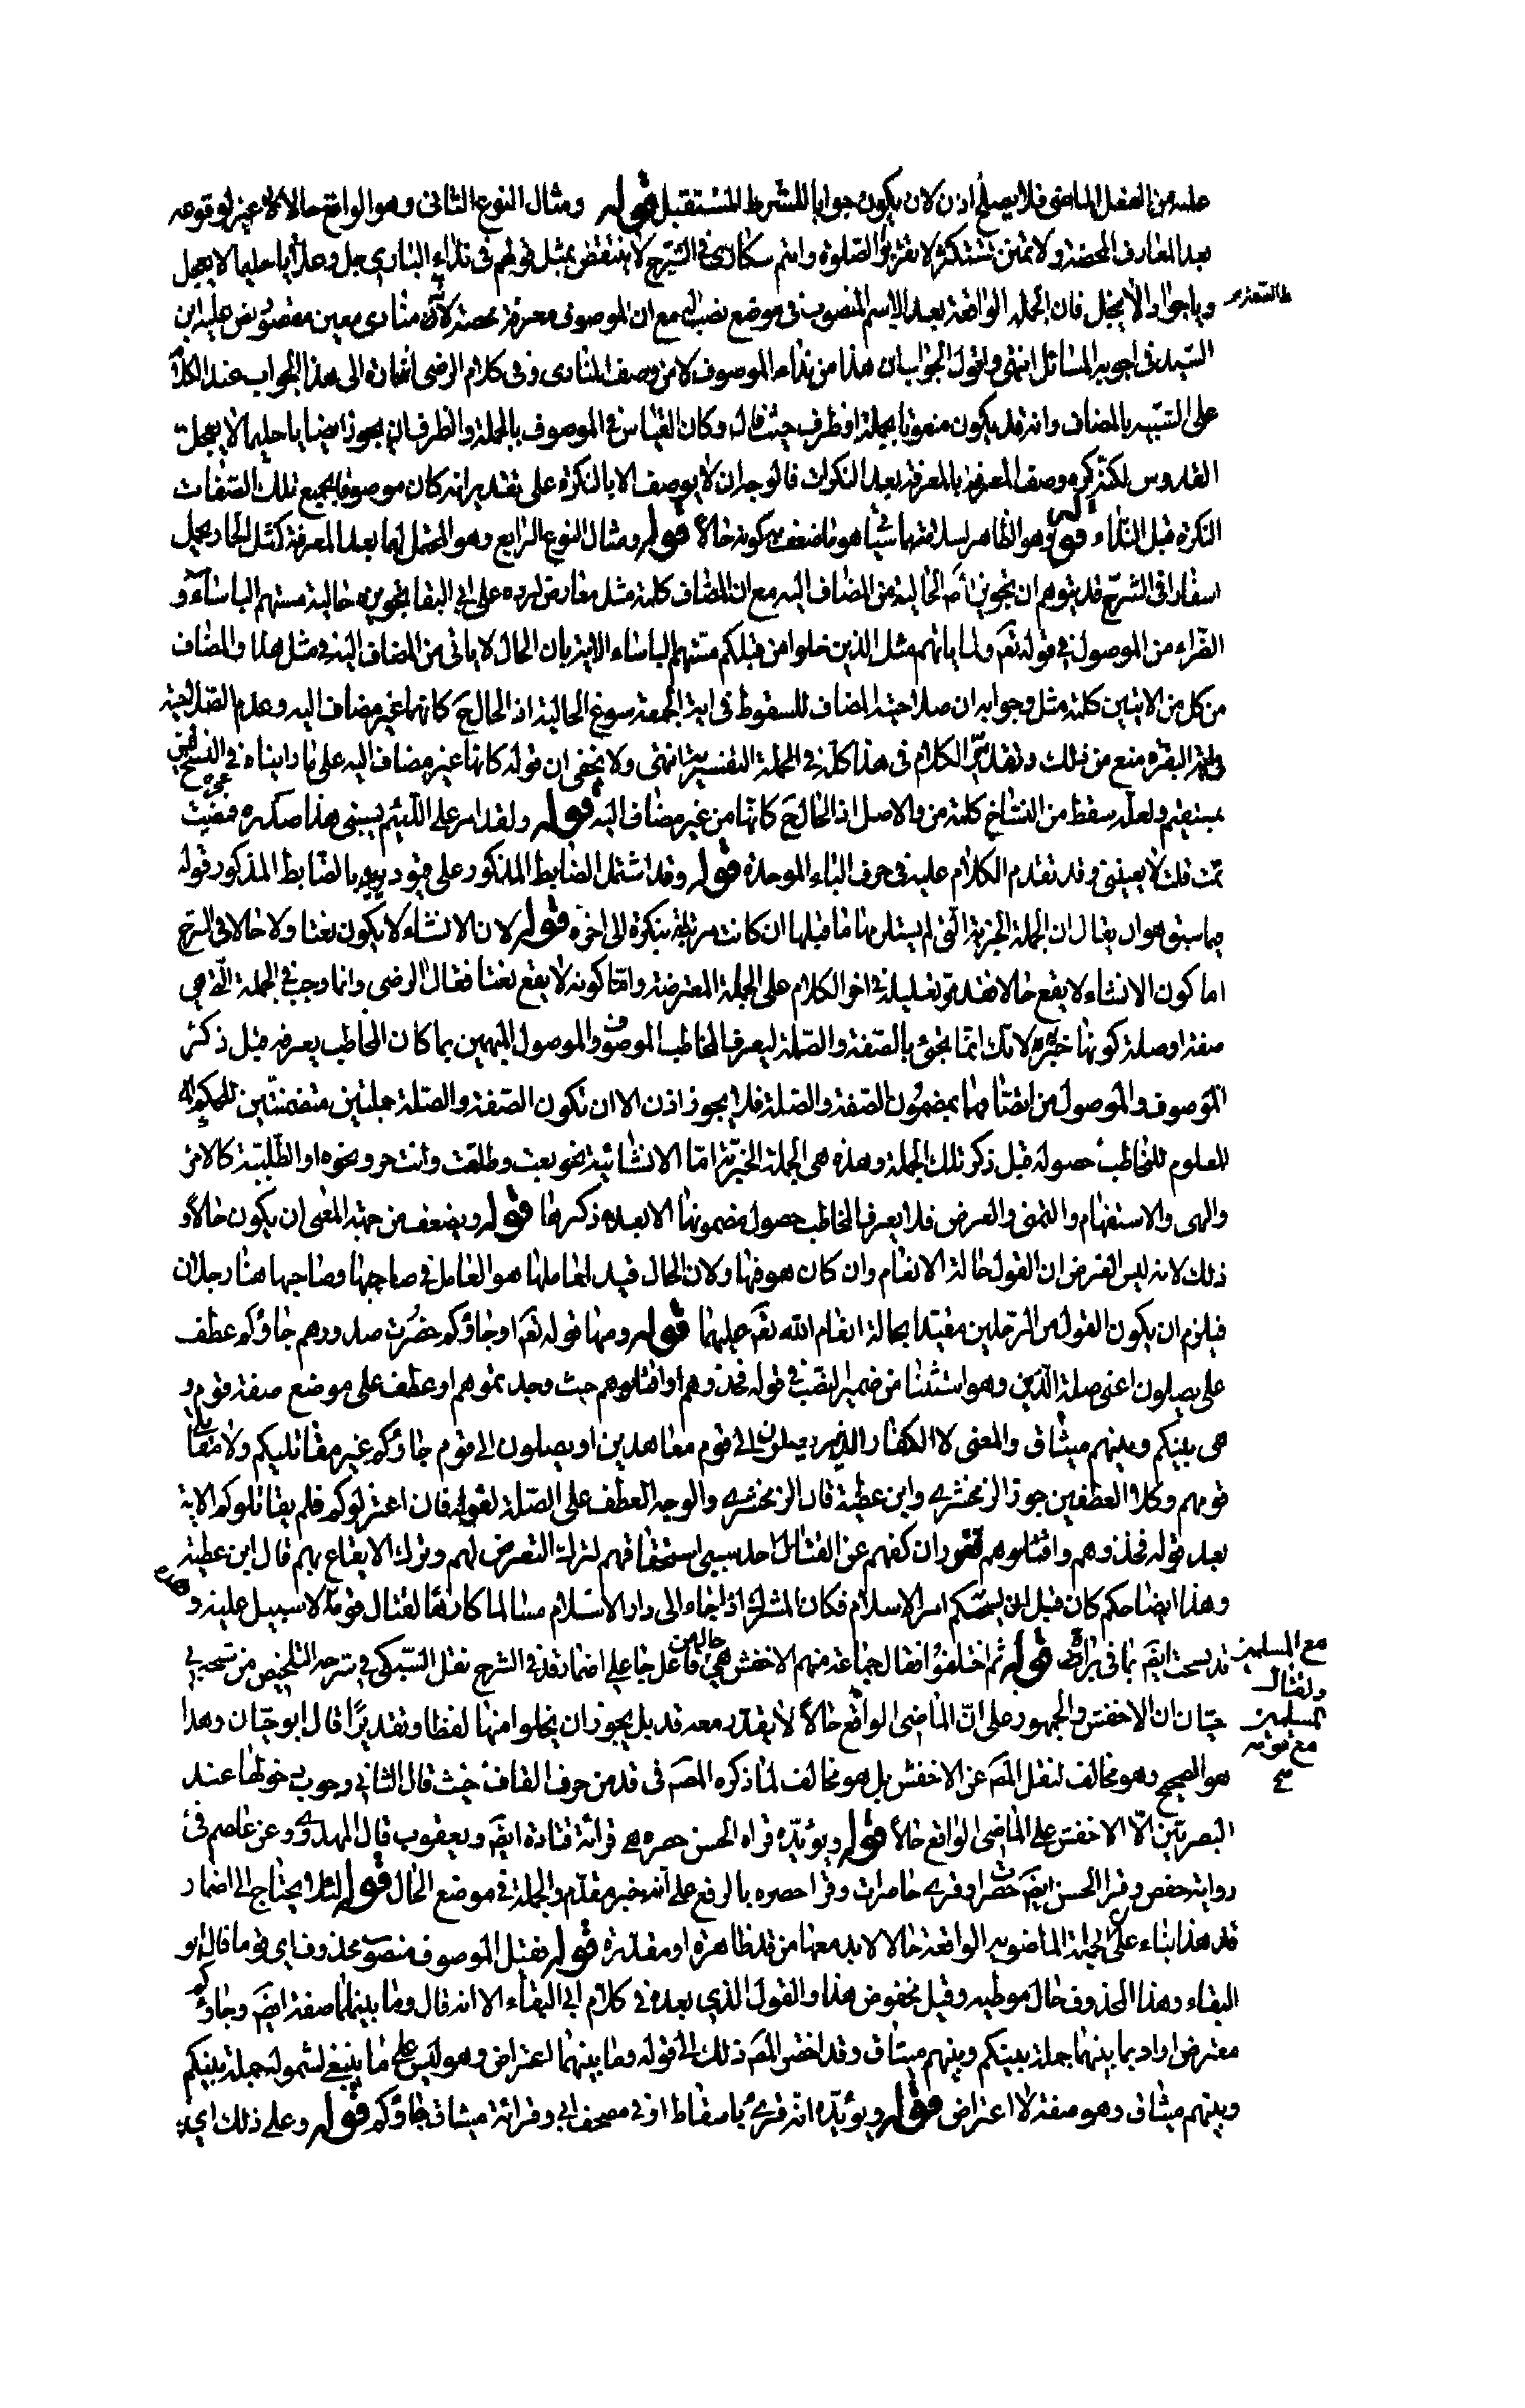 عليه من الفعل الماضى فلا يصلح اذن لان يكون جوابا للشرط المستقبل قوله ومثال النوع الثانى وهو الواقع حالا لا غير لوقوعه
بعد المعارف المحضة ولا تمنن تستكثر لا تقربوا الصلوة وانتم سكارى فى الشرح لا ينتقض بمثل قولهم فى نداء البارى جل وعلا يا حليما لا يعجل
ويا جوادا لا يبخل فان الجملة الواقعة بعد الاسم المنصوب فى موضع نصب مع ان الموصوف معرفة محضة لانه منادى معين مقصود نص عليه ابن
السيد فى اجوبة المسائل انتهى واقول الجواب ان هذا من نداء الموصوف لا من وصف المنادى وفى كلام الرضى اشارة الى هذا الجواب عند الكلام
على الشبيه بالمضاف وانه قد يكون منعوتا بجملة او ظرف حيث قال وكان القياس فى الموصوف بالجملة والظرف ان يجوز ايضا يا حليما لا يعجل
القدوس لكنه كره وصف المعرفة بالمعرفة بعد النكرات فالوجه ان لا يوصف الا بالنكرة على تقدير انه كان موصوفا بجميع تلك الصفات
النكرة قبل النداء قوله وهو الظاهر لسلامتهما هو ما ضعف به كونه حالا قوله ومثال النوع الرابع وهو المحتمل لهما بعد المعرفة كمثل الحمار يحمل
اسفارا فى الشرح قد يتوهم ان تجويز المص الحالية من المضاف اليه مع ان المضاف كلمة مثل معارض لرده على ابى البقا تجويزه حالية مستهم الباساء و
الضراء من الموصول فى قوله تعم ولما ياتهم مثل الذين خلوا من قبلكم مستهم الباساء الاية بان الحال لا ياتى من المضاف اليه فى مثل هذا والمضاف
من كل من الايتين كلمة مثل وجوابه ان صلاحية المضاف للسقوط فى اية الجمعة سوغ الحالية اذ الحال ح كانها عن غير مضاف اليه وعدم الصلاحية
فى اية البقرة منع من ذلك وتقدم الكلام فى هذا كله فى الجملة التفسيرية انتهى ولا يخفى ان قوله كانها غير مضاف اليه على ما رايناه فى النسخ غير
مستقيم ولعله سقط من النساخ كلمة من والاصل اذ الحال ح كانها من غير مضاف اليه قوله ولقد امر على اللئيم يسبنى هذا صدره فمضيت
ثمت قلت لا يعنينى وقد تقدم الكلام عليه فى حرف الباء الموحدة قوله وقد اشتمل الضابط المذكور على قيود يريد بالضابط المذكور قوله
فيما سبق هو ان يقال ان الجملة الخبرية التى لم يستلزمها ما قبلها ان كانت مرتبطة بنكرة الى اخره قوله لان الانشاء لا يكون نعتا ولا حالا فى الشرح
اما كون الانشاء لا يقع حالا فقد مر تعليله فى اخر الكلام على الجملة المعترضة واما كونه لا يقع نعتا فقال الرضى وانما وجب فى الجملة التى هى
صفة او صلة كونها خبرية لانك انما تجئ بالصفة والصلة ليعرف المخاطب الموصوف والموصول المبهمين بما كان المخاطب يعرفه قبل ذكر
الموصوف والموصول من اتصافهما بمضمون الصفة والصلة فلا يجوز اذن الا ان تكون الصفة والصلة جملتين متضمنتين للحكم
المعلوم للمخاطب حصوله قبل ذكر تلك الجملة وهذه هى الجملة الخبرية اما الانشائية نحو بعت وطلقت وانت حر ونحوه او الطلبية كالامر
والنهى والاستفهام والتمنى والعرض فلا يعرف المخاطب حصول مضمونها الا بعد ذكرها قوله ويضعف من جهة المعنى ان يكون حالا و
ذلك لانه ليس الغرض ان القول حالة الانعام وان كان هو فيها ولان الحال قيد لعاملها هو العامل فى صاحبها وصاحبها هنا رجلان
فيلزم ان يكون القول من الرجلين مقيدا بحالة انعام الله تعم عليهما قوله ومنها قوله تعم او جاؤكم حصرت صدورهم جاؤكم عطف
على يصلون اعنى صلة الذين وهو استثنا من ضمير النصب فى قوله فخذوهم واقتلوهم حيث وجدتموهم او عطف على موضع صفة قوم و
هى بينكم وبينهم ميثاق والمعنى لا الكفار الذين يصلون الى قوم معاهدين او يصلون الى قوم جاؤكم غير مقاتليكم ولا مقاتلى
قومهم وكلا العطفين جوز الزمخشرى وابن عطية قال الزمخشرى والوجه العطف على الصلة لقوله فان اعتزلوكم فلم يقاتلوكم الاية
بعد قوله فخذوهم واقتلوهم فقرر ان كفهم عن القتال احد سببى استحقاقهم لترك التعرض لهم وترك الايقاع بهم قال ابن عطية
وهذا ايضا حكم كان قبل ان يستحكم امر الاسلام فكان المشرك اذا جاء الى دار الاسلام مسالما كارها لقتال قومه لا سبيل عليه وهذه
مع المسلمين
ولقتال
المسلمين
مع قومه
صح
قد نسخت ايضا بما فى براءة قوله ثم اختلفوا فقال جماعة منهم الاخفش هى حال من فاعل جا على اضمار قد فى الشرح نقل السبكى فى شرحه التلخيص من شيخه ابى
حيان ان الاخفش والجمهور على ان الماضى الواقع حالا لا يقدر معه قد بل يجوز ان يخلوا منها لفظا وتقديرا قال ابو حيان وهذا
هو الصحيح وهو مخالف لنقل المص عن الاخفش بل هو مخالف لما ذكره المص فى قد من حرف القاف حيث قال الثانى وجوب دخولها عند
البصريين الا الاخفش على الماضى الواقع حالا قوله ويؤيده قراه الحسن حصره هى قرائة قتادة ايضا ويعقوب قال المهدوى وعن عاصم فى
رواية حفص وقرا الحسن ايضا حصرات وقرى حاصرات وقرا حصره بالرفع على انه خبر مقدم والجملة فى موضع الحال قوله لئلا يحتاج الى اضمار
قد هذا بناء على ان الجملة الماضوية الواقعة حالا لا بد معها من قد ظاهرة او مقدرة قوله فقيل الموصوف منصوب محذوف اى قوما قال ابو
البقاء وهذا المحذوف حال موطية وقيل مخفوض هذا والقول الذى بعده فى كلام ابى البقاء الا انه قال وما بينهما صفة ايضا وجاؤكم
معترض اراد بما بينهما جملة بينكم وبينهم ميثاق وقد اختصر المص ذلك الى قوله وما بينهما اعتراض وهو ليس على ما ينبغى لشموله جملة بينكم
وبينهم ميثاق وهو صفة لا اعتراض قوله ويؤيده انه قرئ باسقاط او فى مصحف ابى وقرائة ميثاق جاؤكم قوله وعلى ذلك اى